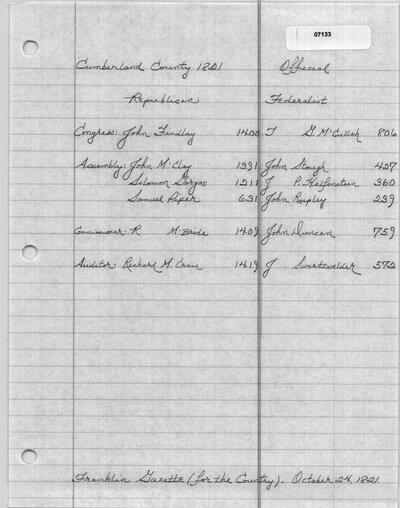 07133
Cumberland County 1821 Official
Republican Federalist
Congress: John Findlay 1400 T G. McCulloh 806
Assembly: John McClay 1391 John Stough 427
Solomon Gorgas 1211 J P. Helfenstein 360
Samuel Piper 631 John Rupley 239
Commissioner: R McBride 1409 John Duncan 759
Auditor: Richard M. Crain 1419 J Swartzwelder 572
Franklin Gazette (for the Country). October 24, 1821.